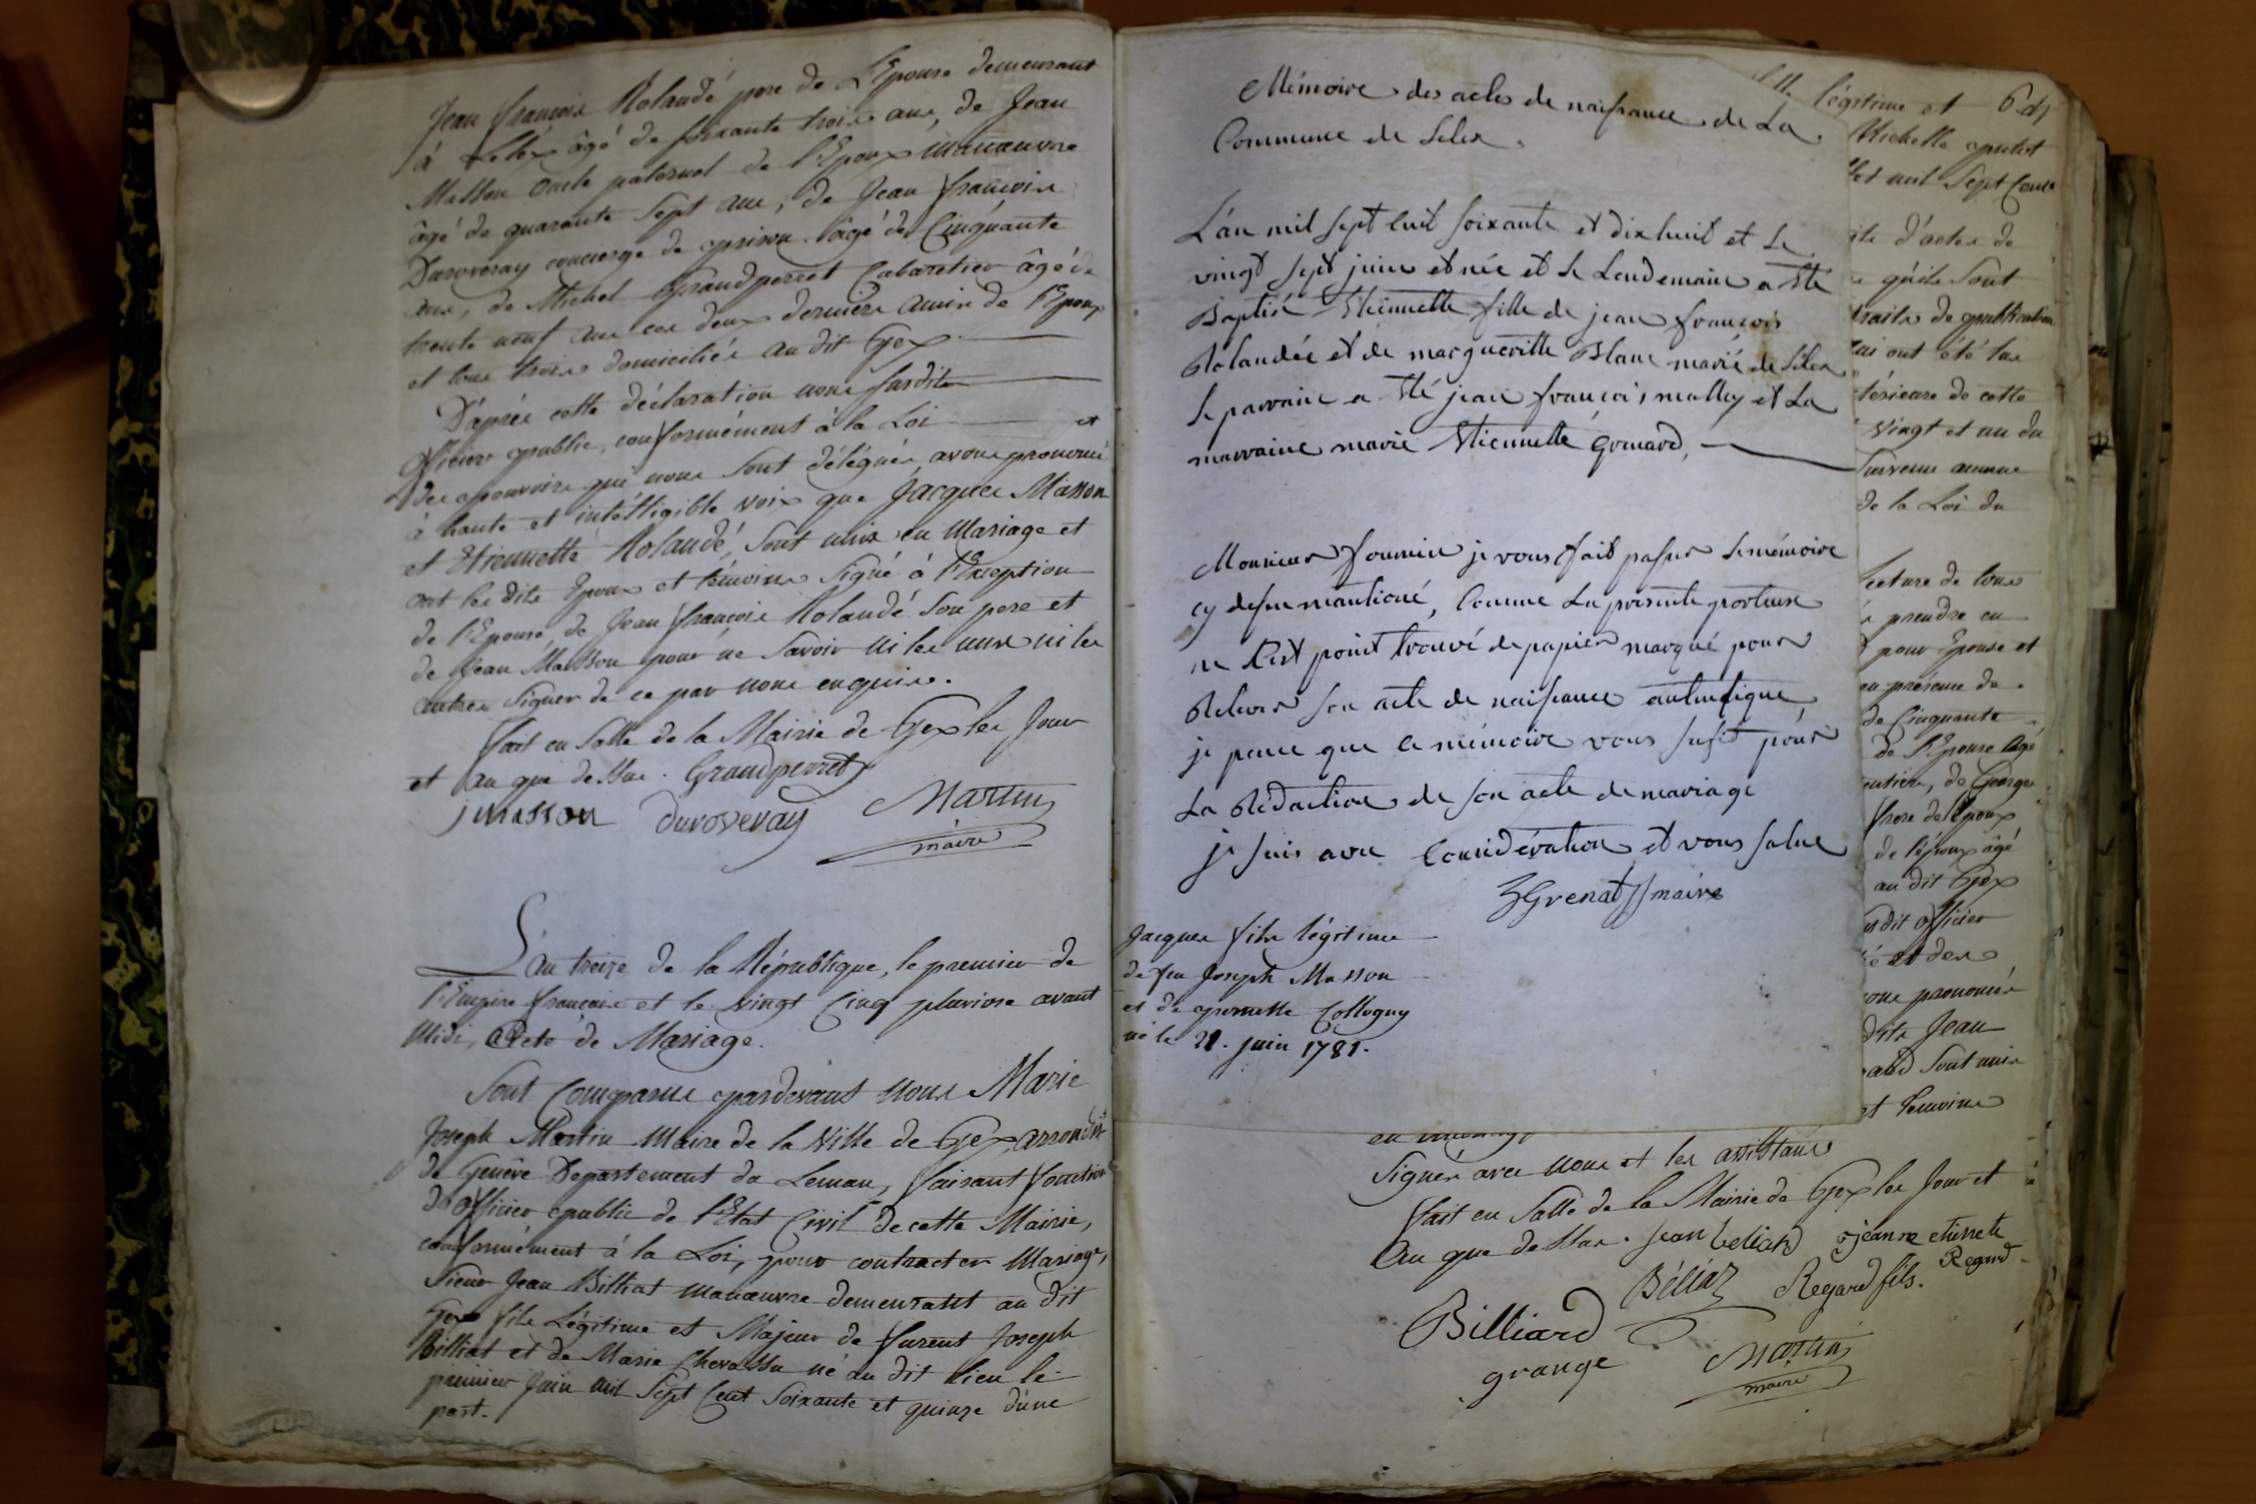 Jean françois Rolandé pere de l'Epouse demeurant
à Lelex âgé de soixante trois ans, de Jean
Masson oncle paternel de l'Epoux manœuvre
âgé de quarante sept ans, de Jean françois
Duroveray concierge de prison âgé de Cinquante
ans, de Michel Grandperret Cabaretier âgé de
trente neuf ans ces deux derniers amis de l'Epoux
et tous trois domiciliés au dit Gex.
D'après cette déclaration nous susdit
officier public, conformément à la Loi et
des pouvoirs qui nous sont délégués, avons prononcé
à haute et intélligible voix que Jacques Masson
et Etiennette Rolandé, sont unis en Mariage et
ont les dits Epoux et témoins signé à l'Exception
de l'Epouse, de Jean françois Rolandé son pere et
de Jean Masson pour ne savoir ni les uns ni les
autres signer de ce par nous enquis.
fait en Salle de la Mairie de Gex les Jour
et an que dessus. Grandperret
j masson duroveray Martin
maire
L'an treize de la République, le premier de
l'Empire français et le vingt Cinq pluviose avant
Midi, Acte de Mariage.
Sont Comparus pardevant nous Marie
Joseph Martin Maire de la Ville de Gex, arrondist
de Genêve Departement du Leman, faisant fonction
d'officier public de l'Etat Civil de cette Mairie,
conformément à la Loi, pour contracter Mariage,
Sieur Jean Billiat manœuvre demeurant au dit
Gex fils Légitime et Majeur de furent Joseph
Billiat et de Marie Chevassu né au dit lieu le
premier Juin mil Sept Cent Soixante et quinze d'une
part.
Mémoire des actes de naissance de La
Commune de Lelex.
L'an mil sept cent soixante et dix huit et le
vingt sept juin et née et le Lendemain a Eté
Baptisé Etiennette fille de jean françois
Rolandée et de margueritte Blanc marié de Lélex
le parrain a Eté jean françois mallez et La
marraine marie Etiennette Gronard,
Monsieur fournier je vous fait passer le mémoire
cy dessus mantioné, Comme La présente porteuse
ne s'est point trouvé de papier marqué pour
Relever son acte de naissance autentique
je pence que ce mémoire vous sufit pour
La Rédaction de son acte de mariage
je suis avec Considération et vous salue
Grenat maire
Jacques fils légitime
de feu Joseph Masson
et de pernette Collogny
né le 21. juin 1781.
légitime et
Michelle
mil Sept Cent
d'actes de
qu'ils sont
de publication
qui ont été lus
de cette
vingt et un du
survenu aucune
de la Loi du
lecture de tous
prendre en
pour Epouse et
en présence de
de Cinquante
de l'Epouse âgé
de George
frere de l'Epoux
de l'époux âgé
au dit Gex
officier
et des
prononcé
Jean
sont unis
et témoins
signés avec nous et les assistans
fait en Salle de la Mairie de Gex les Jour et
An que dessus. Jean beliard jeanne etienete
Regard
Regard fils.
Billiard
grange
Martin
maire